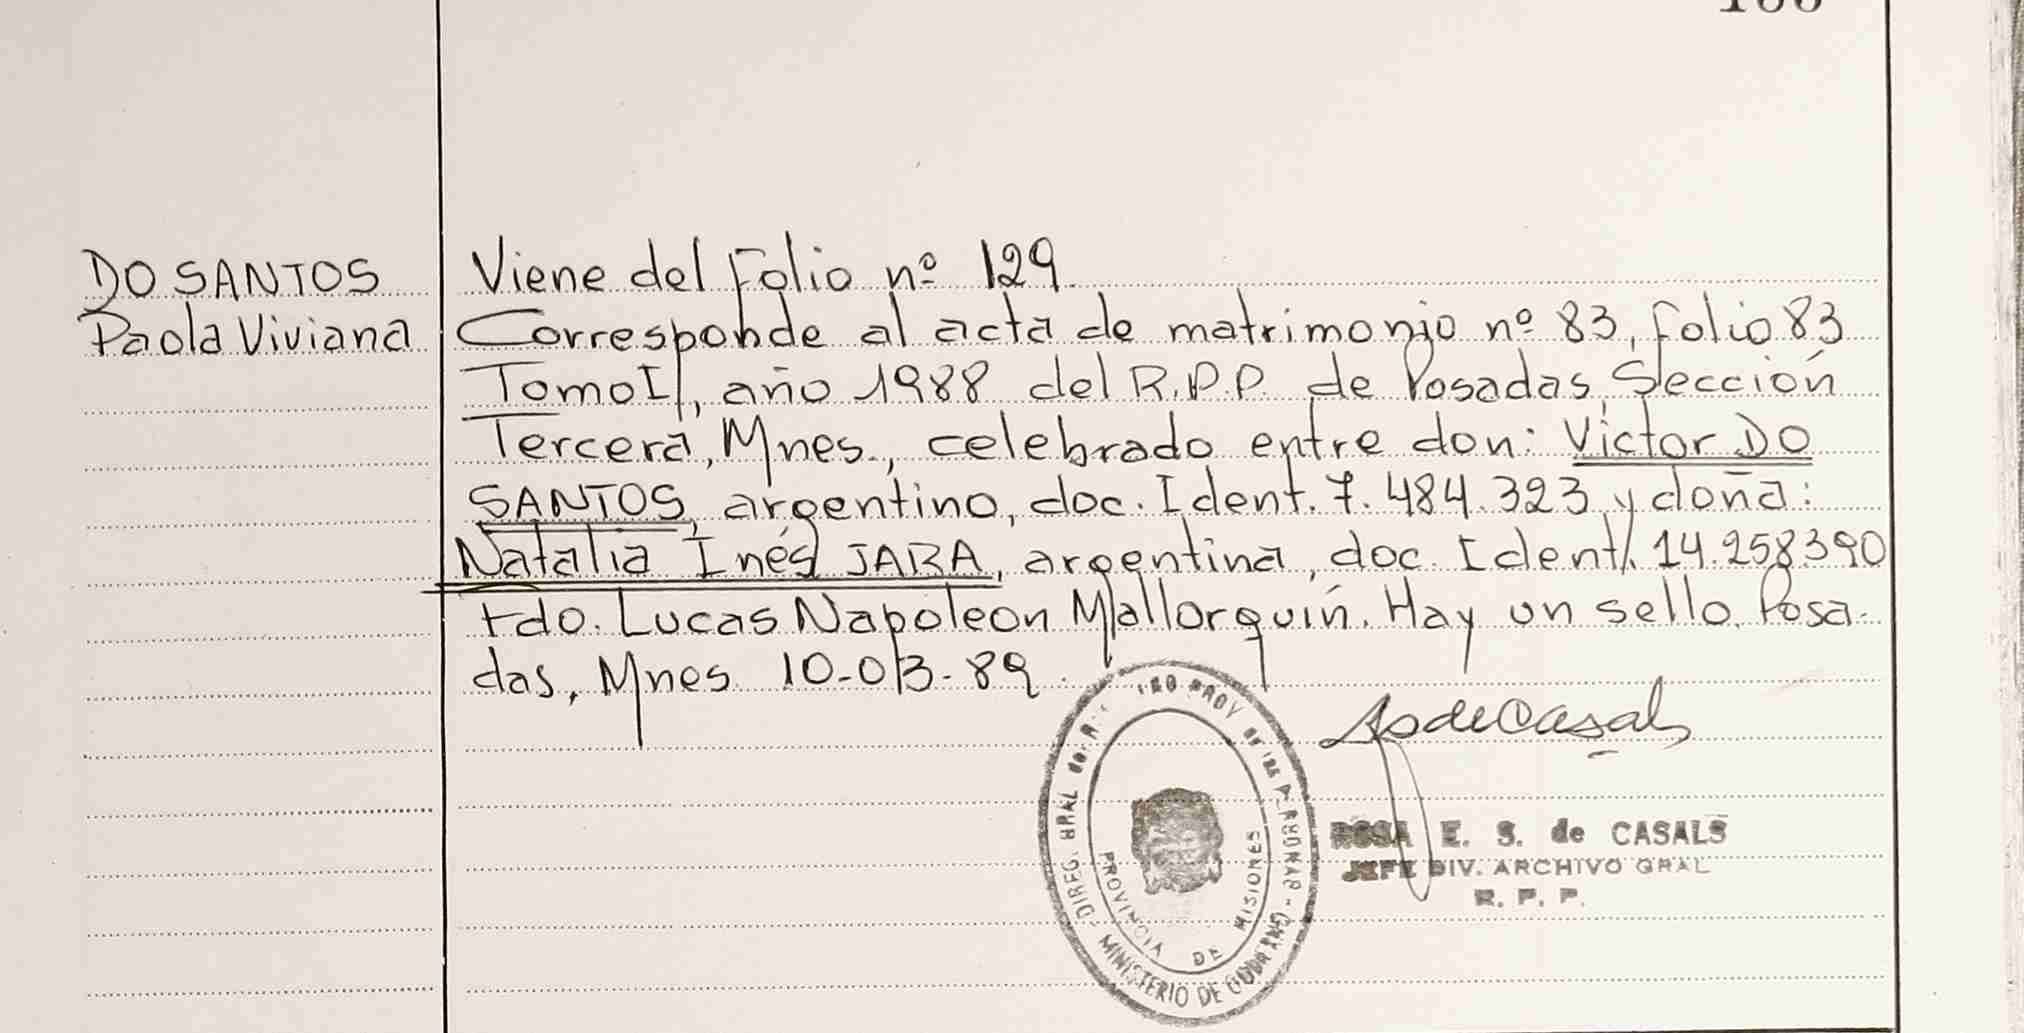 DO SANTOS
Paola Viviana
Viene del Folio nº 129
Corresponde al acta de matrimonio nº 83, folio 83
Tomo II, año 1988 del R.P.P. de Posadas, Sección
Tercera, Mnes., celebrado entre don: Victor DO
SANTOS, argentino, doc. Ident. 7.484.323 y doña:
Natalia Inés JARA, argentina, doc. Ident. 14.258390
Fdo. Lucas Napoleon Mallorquín. Hay un sello. Posa-
das, Mnes 10-03-89.
DIREC. GRAL del
PROV de las
MINISTERIO DE GOBIERNO
PROVINCIA DE MISIONES
ROSA E. S. de CASALS
JEFE DIV. ARCHIVO GRAL
R. P. P.